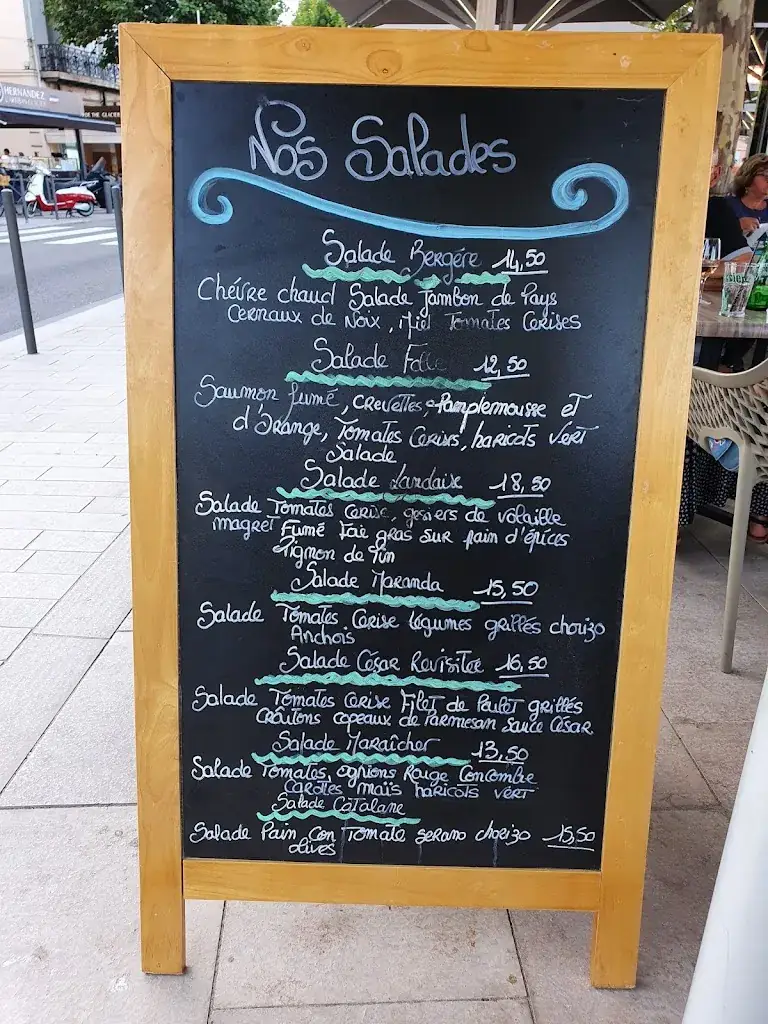 HERNANDEZ
Nos Salades
Salade Bergère 14,50
Chévre chaud Salade Jambon de Pays
Cernaux de Noix, Miel Tomates Cerises
Salade Folle 12,50
Saumon fumé, crevettes, Pamplemousse et
d'Orange, Tomates Cerises, haricots vert
Salade
Salade Landaise 18,50
Salade Tomates Cerise, gesiers de volaille
magret Fumé Foie gras sur pain d'épices
Pignon de Pin
Salade Maranda 15,50
Salade Tomates Cerise légumes grillés chorizo
Anchois
Salade César Revisitée 16,50
Salade Tomates Cerise Filet de Poulet grillés
croûtons copeaux de Parmesan Sauce César
Salade Maraîcher 13,50
Salade Tomates, ognions Rouge Concombre
carottes maïs haricots vert
Salade Catalane
Salade Pain Con Tomate serano chorizo 15,50
olives